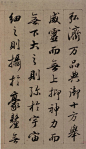 弘濟萬品典御十方舉
威靈而無上抑神力而
無下大之則弥於宇宙
細之則攝於豪釐無